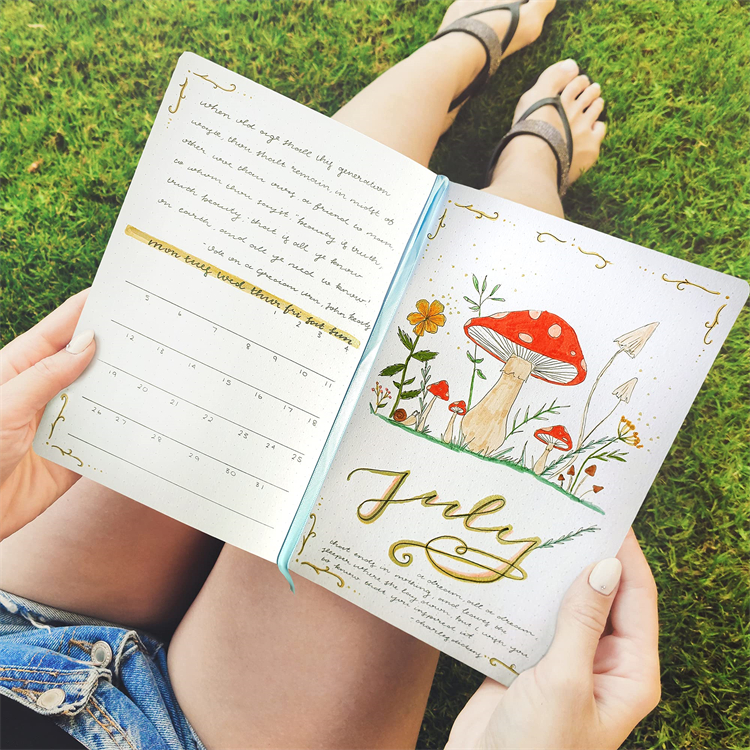 when old age shall this generation
waste, thou shalt remain, in midst of
other woe than ours, a friend to man
to whom thou sayst: beauty is truth,
truth beauty - that is all ye know
on earth, and all ye need to know!
- Ode on a Grecian urn, John Keats
mon tues wed thur fri sat sun
1 2 3 4
5 6 7 8 9 10 11
12 13 14 15 16 17 18
19 20 21 22 23 24 25
26 27 28 29 30 31
July
a dream, all a dream,
that ends in nothing, and leaves the
sleeper where he lay down, but i wish you
to know that you inspired it
- charles dickens